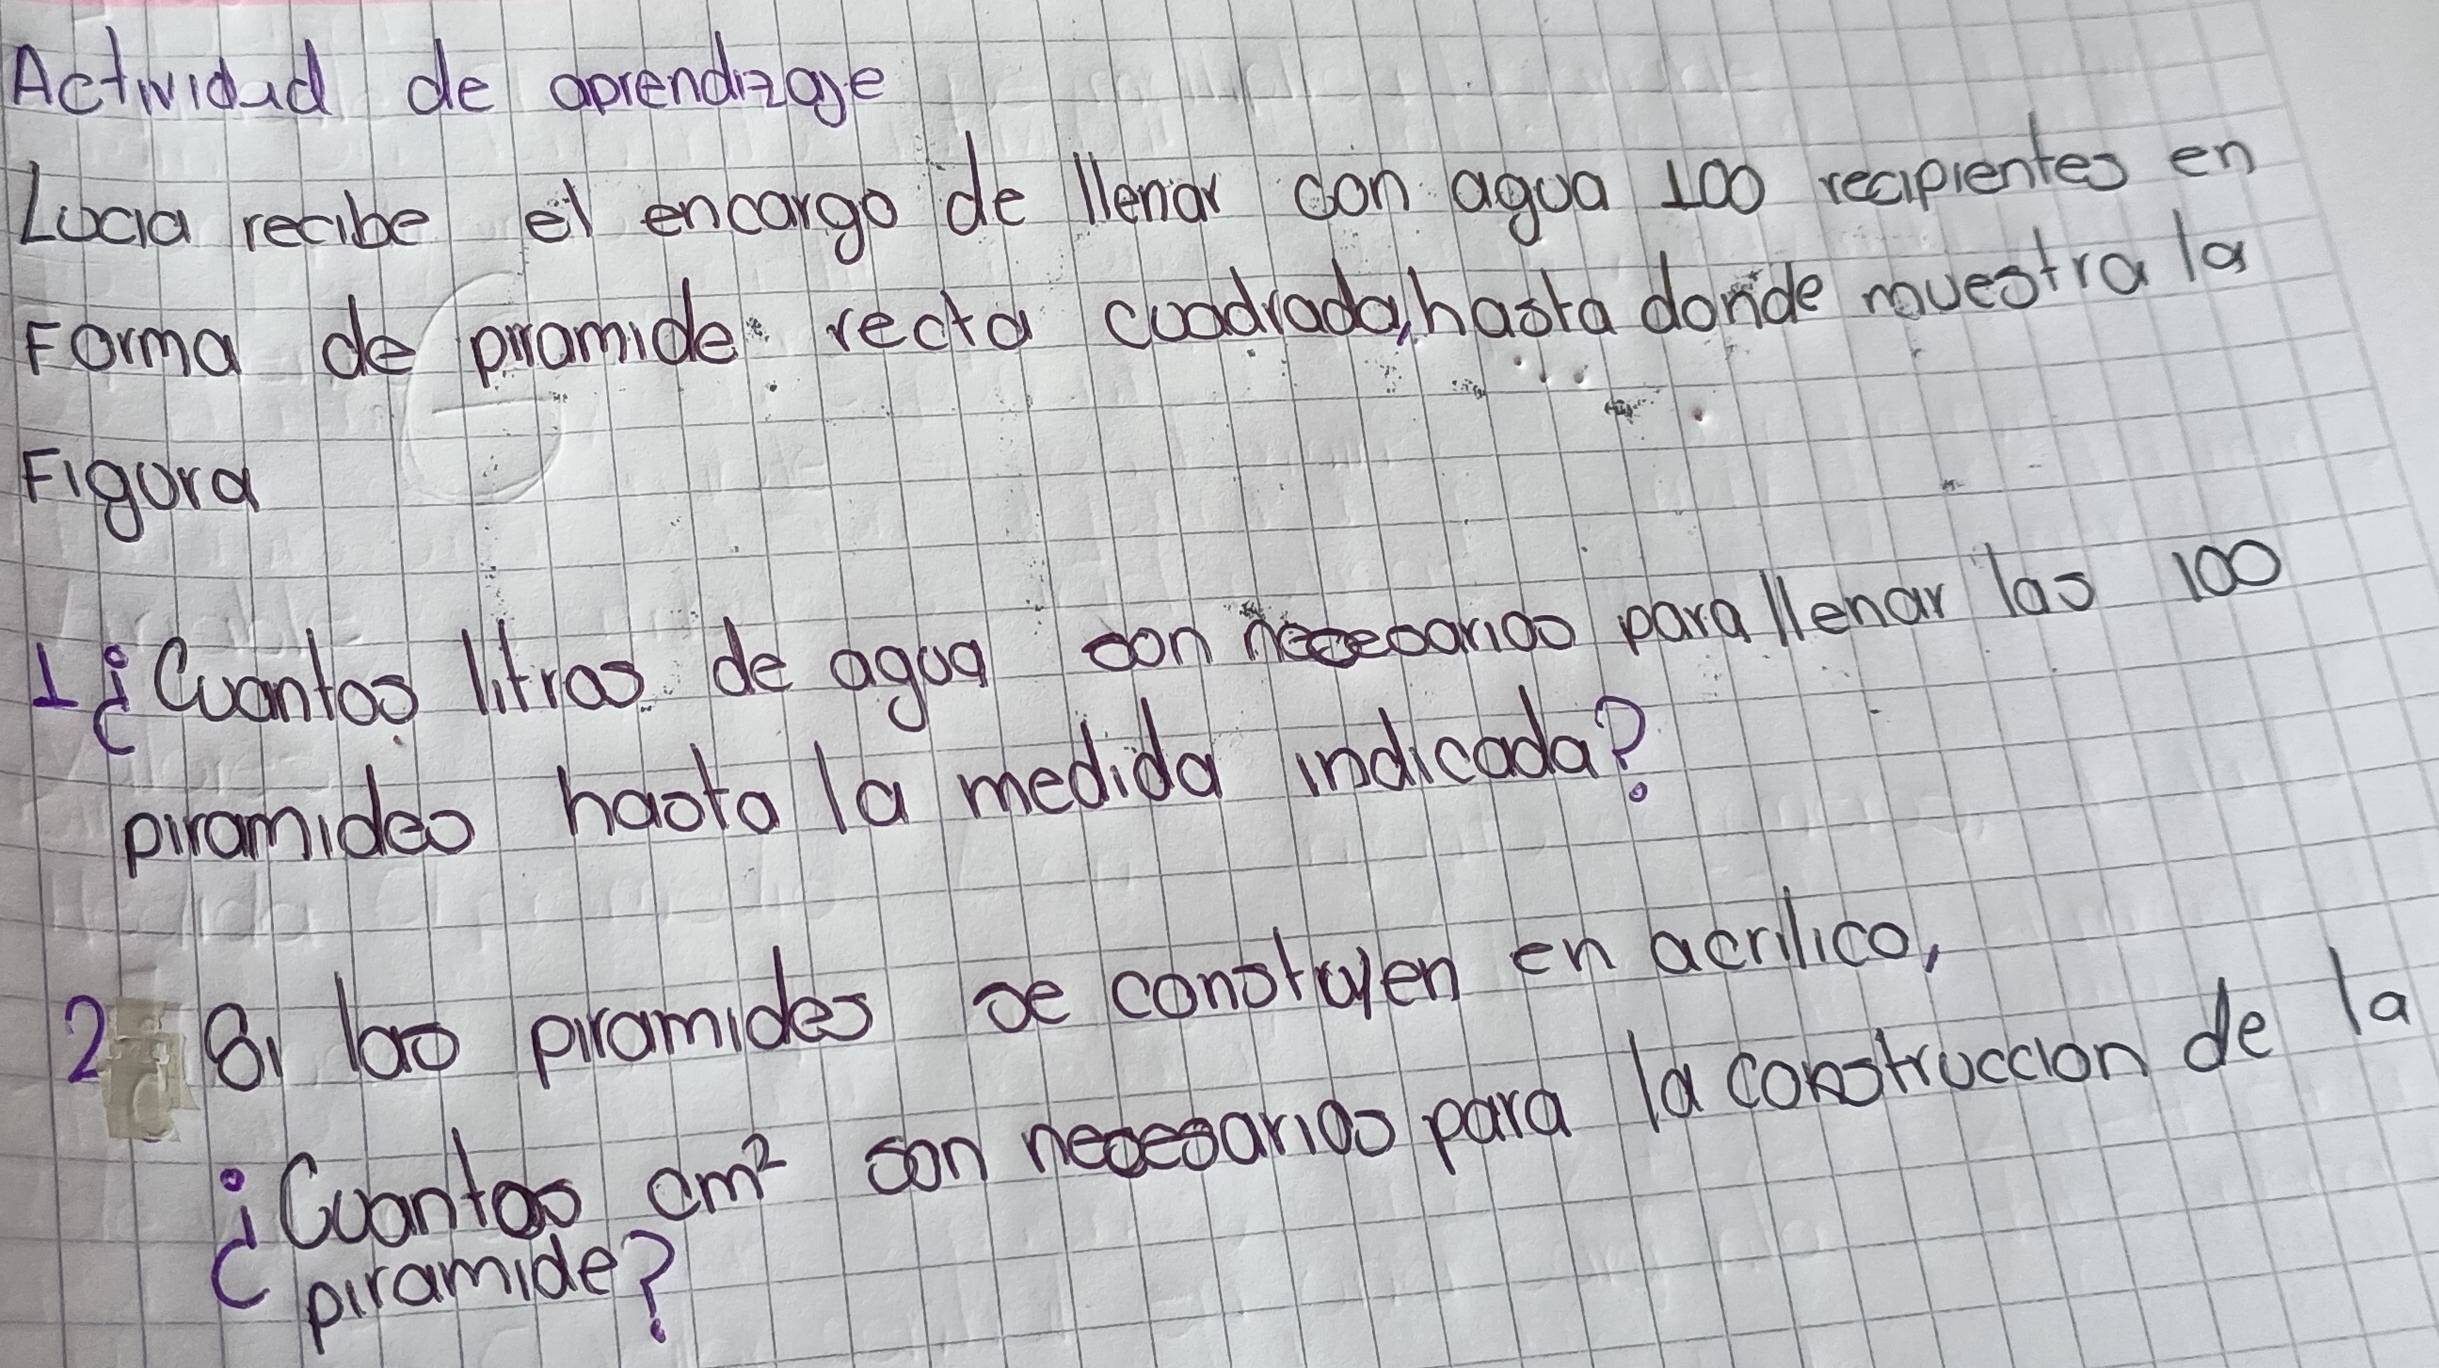 Actividad de aprendizaje
Lucia recibe el encargo de llenar con agua 100 recipientes en
Forma de piramide recta cuadrada, hasta donde muestra la
Figura
1 ¿Cuantos litros de agua son necesarios para llenar las 100
piramides hasta la medida indicada?
2 Si las piramides se construyen en acrilico,
¿Cuantos cm² son necesarios para la construccion de la
piramide?